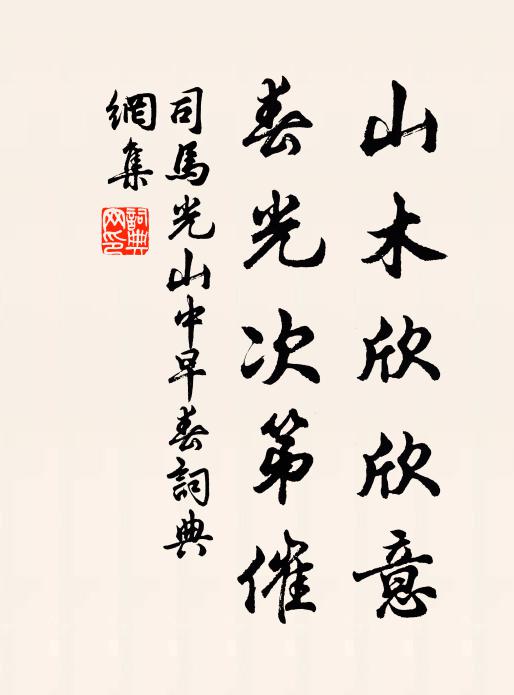 山木欣欣意
春光次第催
司馬光山中早春詞典
網集
詞典網印